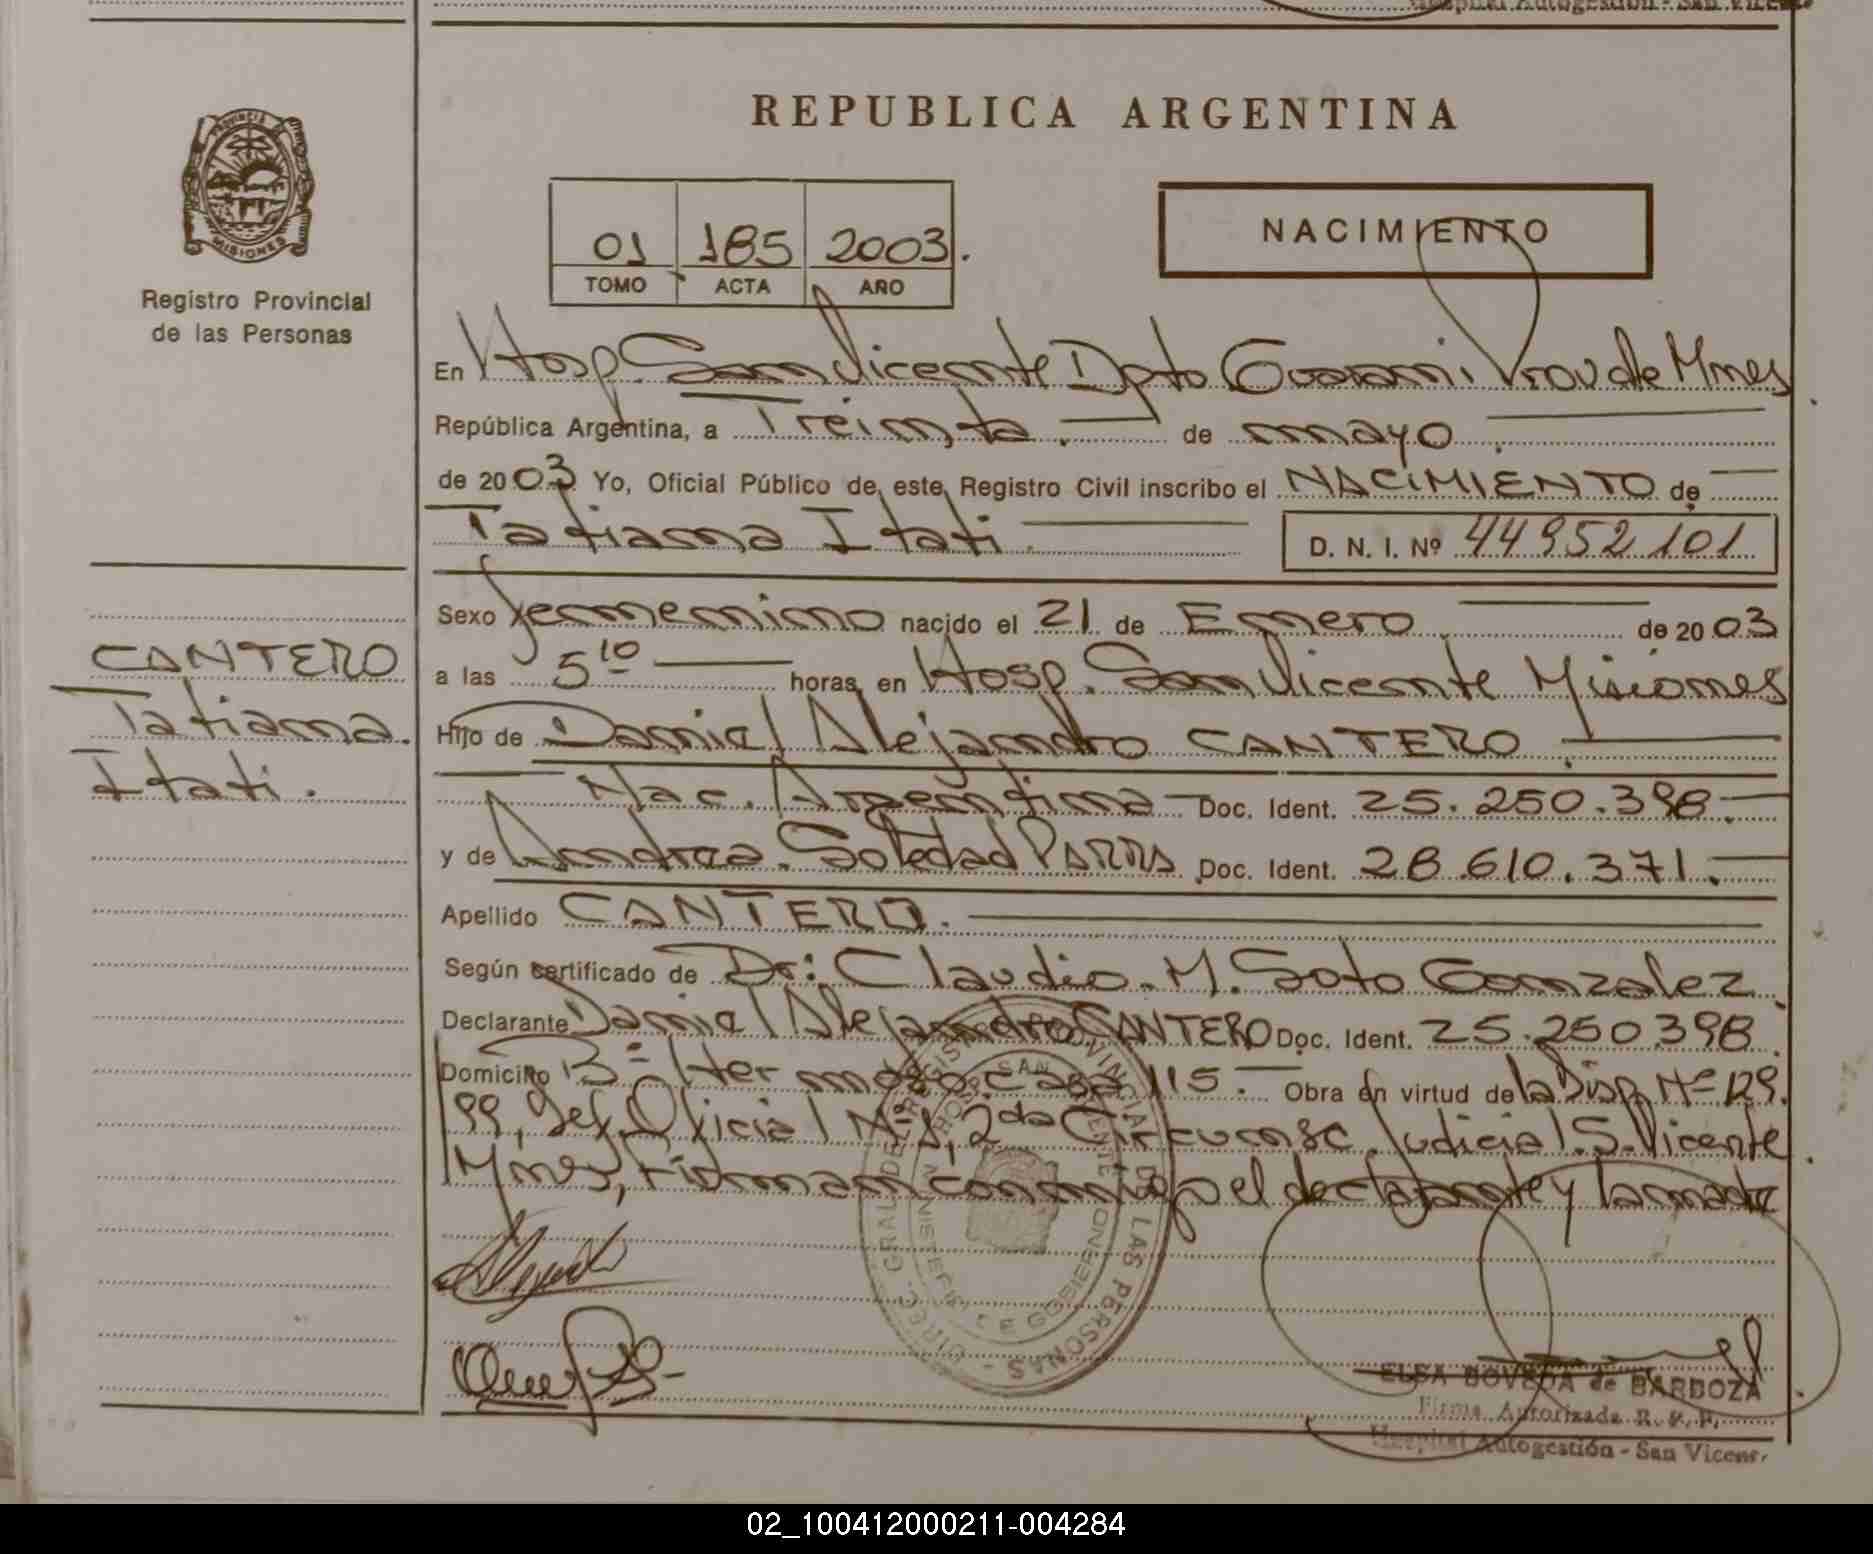 Hospital Autogestión - San Vicente
REPUBLICA ARGENTINA
PROVINCIA DE
MISIONES
Registro Provincial
de las Personas
01 185 2003.
TOMO ACTA AÑO
NACIMIENTO
En Hosp. San Vicente Dpto Guarani. Prov de Mnes
República Argentina, a Treinta. de mayo.
de 2003 Yo, Oficial Público de este Registro Civil inscribo el NACIMIENTO de
Tatiana Itati. D. N. I. Nº 44952101
Sexo femenino nacido el 21 de Enero de 2003
a las 5 10 horas, en Hosp. San Vicente Misiones
Hijo de Daniel Alejandro CANTERO.
Nac. Argentina Doc. Ident. 25.250.398.
y de Andrea Soledad PARRA Doc. Ident. 28.610.371.
Apellido CANTERO.
Según certificado de Dr: Claudio M. Soto Gonzalez
Declarante Daniel Alejandro CANTERO Doc. Ident. 25.250.398
Domicilio Bº Hermoso casa 115. Obra en virtud de la Disp. Nº 129.
99, Def. Oficial Nº 1, 2da Circunsc. Judicial S. Vicente
Mnes, Firman conmigo el declarante y la madre
CANTERO
Tatiana
Itati.
DIREC. GRAL DEL REGIST. PROVINCIAL DE LAS PERSONAS
HOSP. SAN VICENTE
MINISTERIO DE GOBIERNO
ELSA BOVEDA de BARBOZA
Firma Autorizada R. P. P.
Hospital Autogestión - San Vicente
02_100412000211-004284